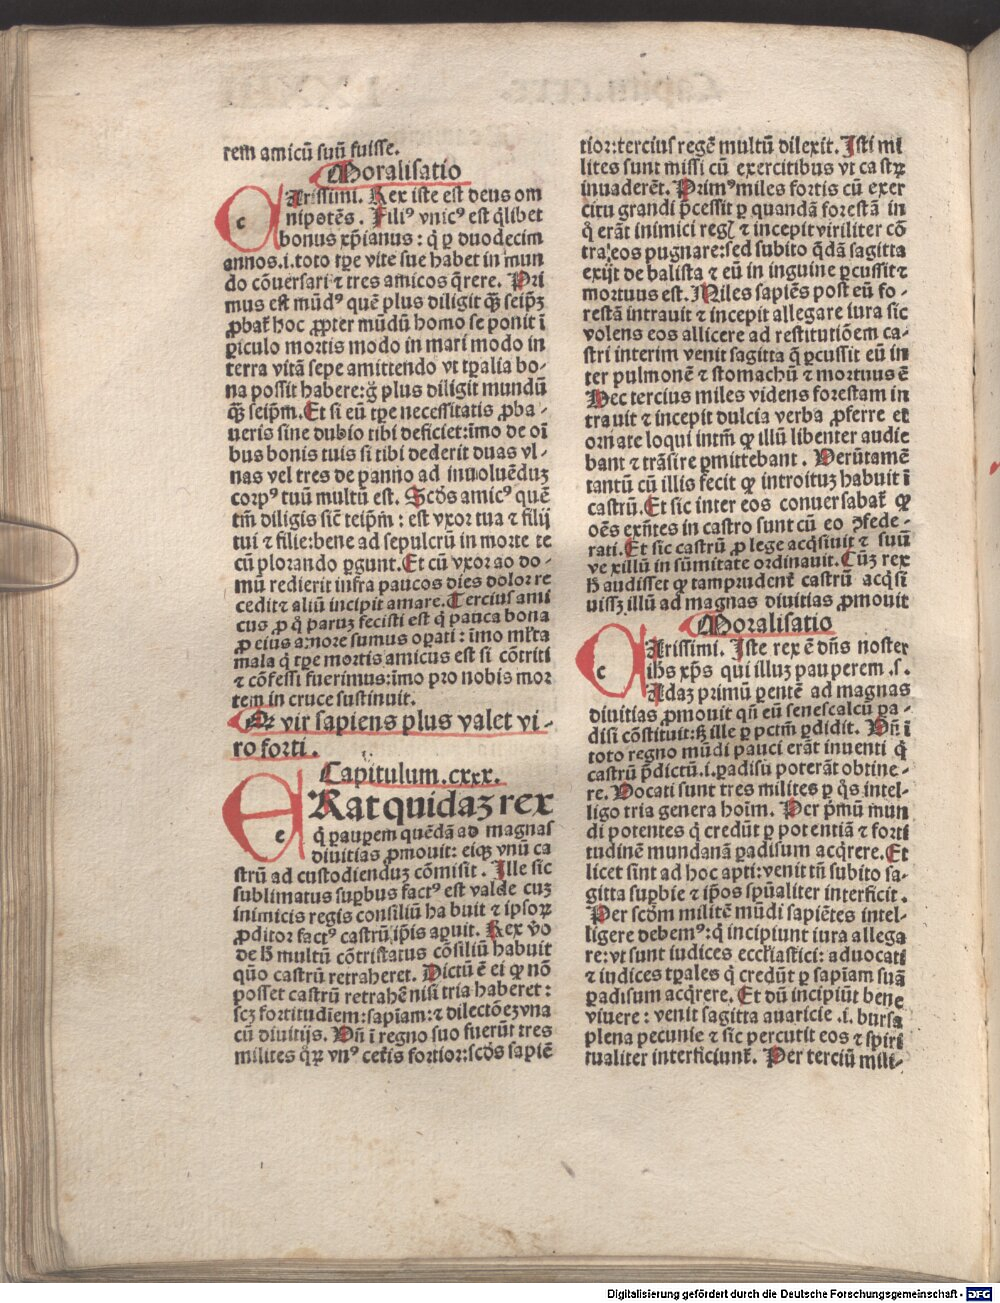 rem amicū suū fuisse.
Moralisatio
cArissimi. Rex iste est deus om
nipotēs. Filiꝰ vnicꝰ est q̄libet
bonus xp̄ianus: q̄ ꝑ duodecim
annos.i.toto tꝑe vite sue habet in mun
do cōuersari ⁊ tres amicos q̄rere. Pri
mus est mūdꝰ quē plus diligit qꝫ̄ seip̄ꝫ
ꝓbat̄ hoc ꝓpter mūdū homo se ponit ī
ꝑiculo mortis modo in mari modo in
terra vitā sepe amittendo vt tꝑalia bo-
na possit habere:g̊ plus diligit mundū
qꝫ̄ seip̄m.Et si eū tꝑe necessitatis ꝓba-
ueris sine dubio tibi deficiet:īmo de oī
bus bonis tuis si tibi dederit duas vl-
nas vel tres de panno ad inuoluēduꝫ
corpꝰ tuū multū est. Scd̄s amicꝰ quē
tm̄ diligis sic̄ teip̄m: est vxor tua ⁊ filij
tui ⁊ filie:bene ad sepulcrū in morte te
cū plorando ꝑgunt.Et cū vxor ao do-
mū redierit infra paucos dies dolor re
cedit⁊ aliū incipit amare.Tercius ami
cus ꝓ q̄ paruꝫ fecisti est q̄ pauca bona
ꝓ eius amore sumus oꝑati: īmo ml̄ta
mala q̄ tꝑe mortis amicus est si cōtriti
⁊ cōfessi fuerimus:īmo pro nobis mor
tem in cruce sustinuit.
Qꝛ vir sapiens plus valet vi-
ro forti.
Capitulum.cxxx.
eRat quidaꝫ rex
q̄ pauꝑem quēdā ad magnas
diuitias ꝓmouit: eiqꝫ vnū ca
strū ad custodienduꝫ cōmisit. Ille sic
sublimatus suꝑbus factꝰ est valde cuꝫ
inimicis regis consiliū habuit ⁊ ipsoꝝ
ꝓditor factꝰ castrū ip̄is aꝑuit. Rex v̊o
de h̄ multū cōtristatus cōsiliū habuit
quō castrū retraheret. Dictū ē ei qꝙ nō
posset castrū retrahē nisi tria haberet:
scꝫ fortitudīem:sapīam:⁊ dilectōeꝫ vna
cū diuitijs. Dn̄ ī regno suo fuerūt tres
milites qꝝ vnꝰ cet̄is fortior:scd̄s sapiē
tior:tercius regē multū dilexit. Isti mi
lites sunt missi cū exercitibus vt castꝝ
inuaderēt. Primꝰ miles fortis cū exer
citu grandi p̄cessit ꝑ quandā forestā in
q̄ erāt inimici regꝭ ⁊ incepit viriliter cō
tra eos pugnare:sed subito q̄dā sagitta
exijt de balista ⁊ eū in inguine ꝑcussit⁊
mortuus est. Miles sapiēs post eū fo-
restā intrauit ⁊ incepit allegare iura sic
volens eos allicere ad restitutiōem ca-
stri interim venit sagitta q̄ ꝑcussit eū in
ter pulmonē ⁊ stomachū ⁊ mortuus ē
Hec tercius miles videns forestam in
trauit ⁊ incepit dulcia verba ꝓferre et
ornate loqui intm̄ qꝙ illū libenter audie
bant ⁊ trāsire ꝑmittebant. Verūtamē
tantū cū illis fecit qꝙ introituꝫ habuit ī
castrū.Et sic inter eos conuersabat̄ qꝙ
oēs exn̄tes in castro sunt cū eo ꝯfede-
rati.Et sic castrū ꝓ lege acq̄siuit ⁊ suū
vexillū in sūmitate ordinauit.Cūꝫ rex
h̄ audisset qꝙ tamprudent̄ castrū acq̄si
uissꝫ illū ad magnas diuitias ꝓmouit
Moralisatio
cArissimi. Iste rex ē dn̄s noster
ihs̄ xp̄s qui illuꝫ pauperem .s.
Adaꝫ primū ꝑentē ad magnas
diuitias ꝓmouit qn̄ eū senescalcū ꝑa-
disi cōstituit:sꝫ ille ꝑ pctm̄ ꝑdidit. Dn̄ ī
toto regno mūdi pauci erāt inuenti q̄
castrū p̄dictū.i.ꝑadisū poterāt obtine-
re. Vocati sunt tres milites ꝑ q̄s intel-
ligo tria genera hoīm. Per p̄mū mun
di potentes q̄ credūt ꝑ potentiā ⁊ forti
tudinē mundanā ꝑadisum acq̄rere.Et
licet sint ad hoc apti:venit tn̄ subito sa-
gitta suꝑbie ⁊ ip̄os spūaliter interficit.
Per scd̄m militē mūdi sapiētes intel-
ligere debemꝰ:q̄ incipiunt iura allega
re:vt sunt iudices eccl̄iastici: aduocati
⁊ iudices tꝑales q̄ credūt ꝑ sapīam suā
ꝑadisum acq̄rere. Et dū incipiūt bene
viuere: venit sagitta auaricie .i. bursa
plena pecunie ⁊ sic percutit eos ⁊ spiri
tualiter interficiunt̄. Per terciū mili-
Digitalisierung gefördert durch die Deutsche Forschungsgemeinschaft - DFG